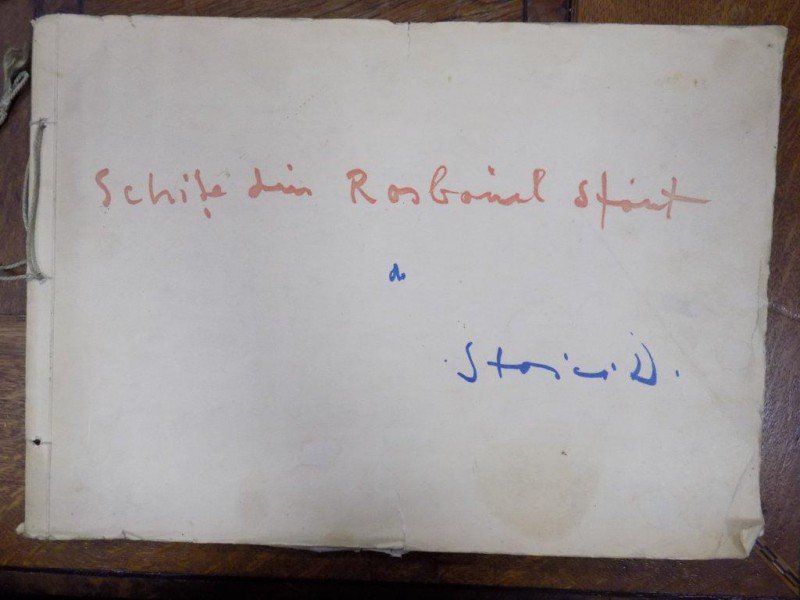 Schițe din Rosboiul sfânt
de
Stoica D.